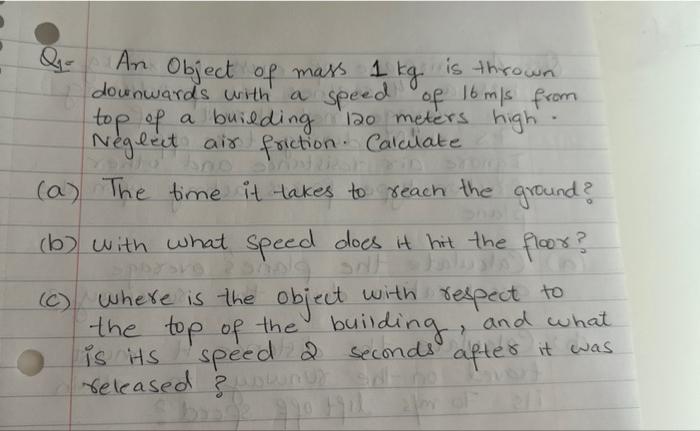 Q1- An Object of mass 1 kg is thrown
downwards with a speed of 16 m/s from
top of a building 120 meters high.
Neglect air friction. Calculate
(a) The time it takes to reach the ground?
(b) with what speed does it hit the floor?
(c) where is the object with respect to
the top of the building, and what
is its speed 2 seconds after it was
released?